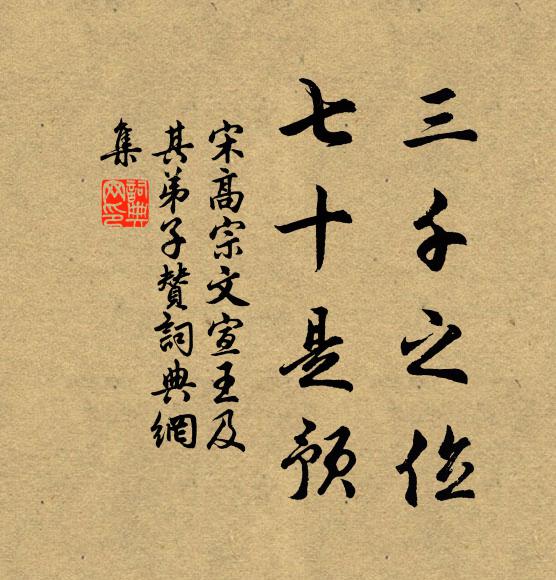 三千之位
七十是預
宋高宗文宣王及
其弟子贊詞典網
集
詞典
网印